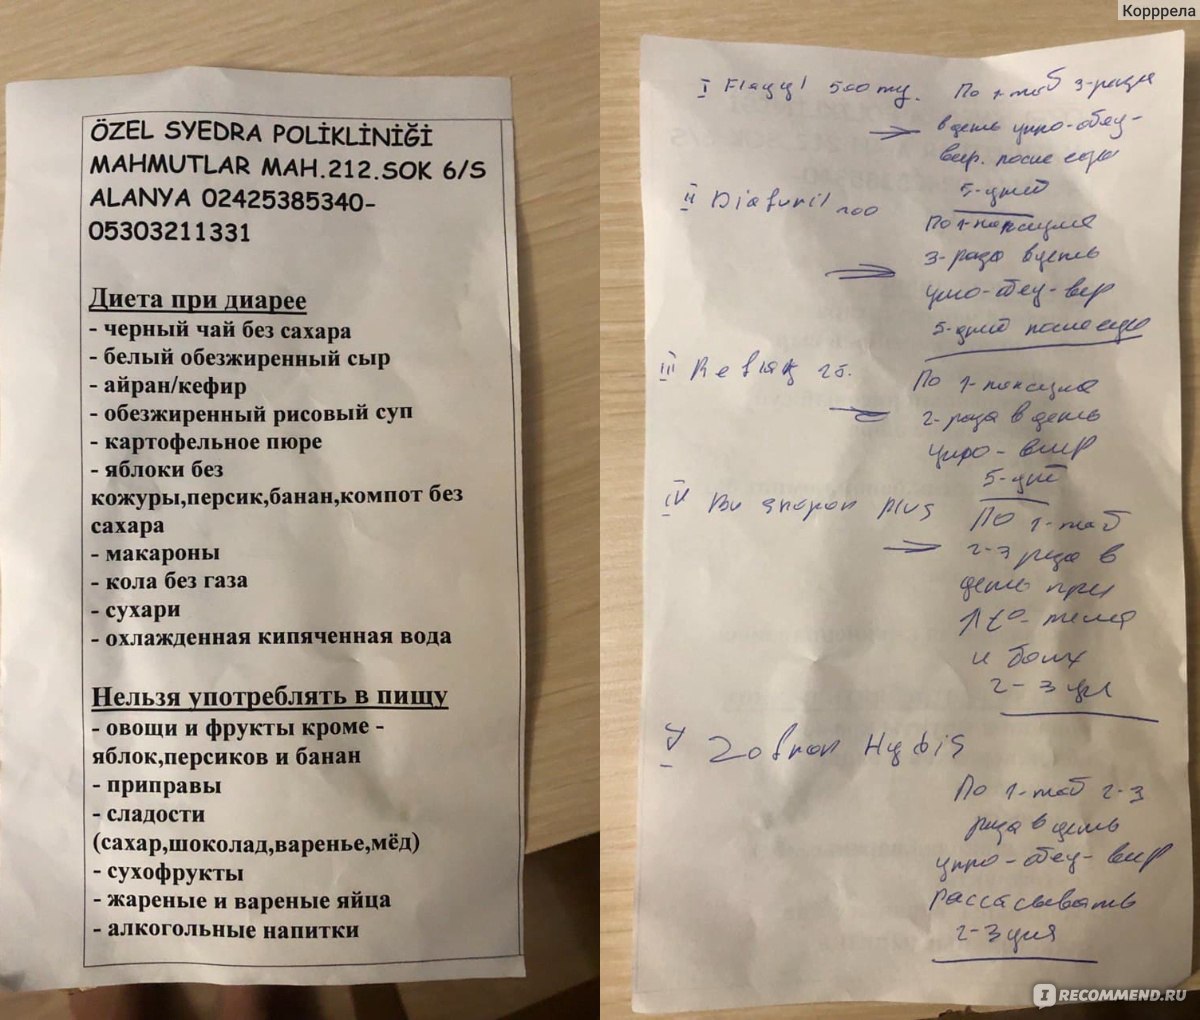 Корррела
ÖZEL SYEDRA POLİKLİNİĞİ
MAHMUTLAR MAH.212.SOK 6/S
ALANYA 02425385340-
05303211331
Диета при диарее
- черный чай без сахара
- белый обезжиренный сыр
- айран/кефир
- обезжиренный рисовый суп
- картофельное пюре
- яблоки без
кожуры,персик,банан,компот без
сахара
- макароны
- кола без газа
- сухари
- охлажденная кипяченная вода
Нельзя употреблять в пищу
- овощи и фрукты кроме -
яблок,персиков и банан
- приправы
- сладости
(сахар,шоколад,варенье,мёд)
- сухофрукты
- жареные и вареные яйца
- алкогольные напитки
I Flagyl 500 mg. По 1-таб 3-раза
в день утро-обед-
веч. после еды
5-дней
II Diafuril 200
По 1-капсуле
3-раза в день
утро-обед-веч
5-дней после еды
III
По 1-капсуле
2-раза в день
утро-веч
5-дней
IV plus
По 1-таб
2-3 раза в
день при
t°-тела
и болях
2-3 дня
V Zofran
По 1-таб 2-3
раза в день
утро-обед-веч
рассасывать
2-3 дня
IRECOMMEND.RU